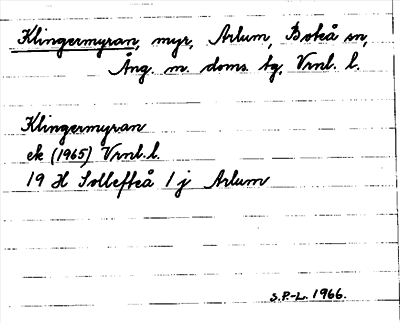 Klingermyran, myr, Arlum, Boteå sn,
Ång. m. doms. bg, Vrnl. l.
Klingermyran
ek (1965) Vrnl. l.
19 H Sollefteå 1 j Arlum
S.P-L. 1966.